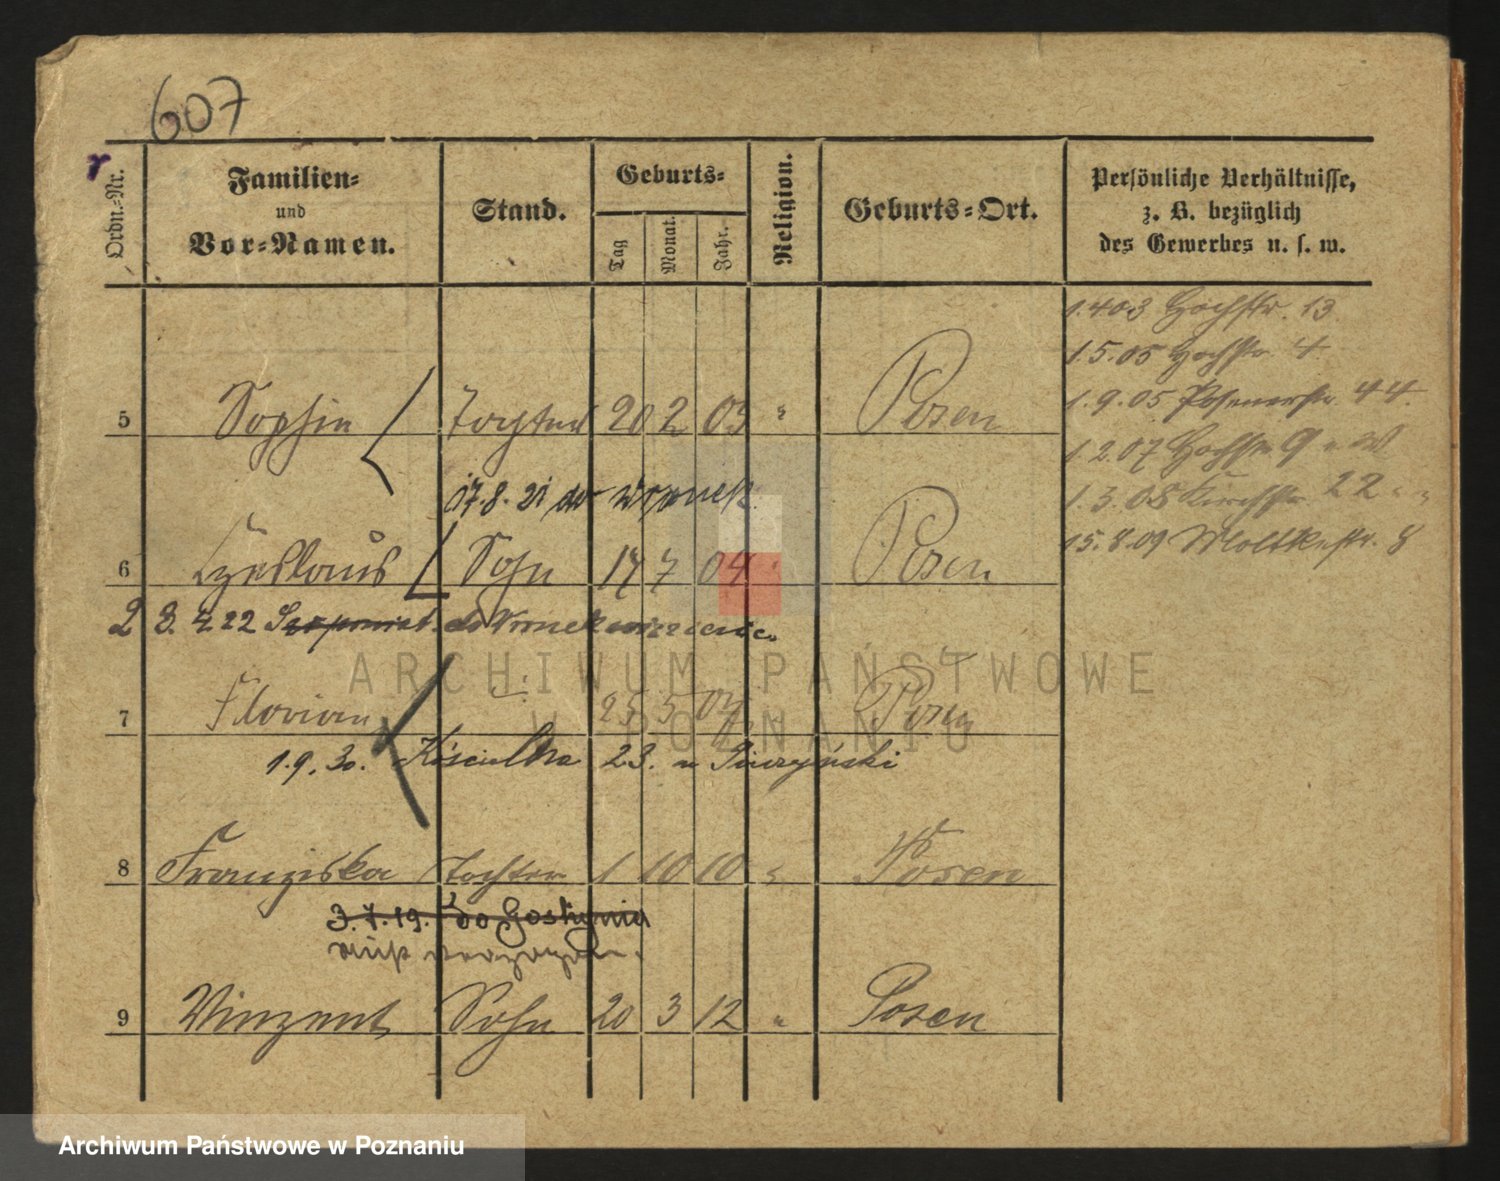 607
Ordn.-Nr.
Familien-
und
Vor-Namen.
Stand.
Geburts-
Tag
Monat.
Jahr.
Religion.
Geburts-Ort.
Persönliche Verhältnisse,
z. B. bezüglich
des Gewerbes u. s. w.
1.4 03 Hochstr. 13
1.5.05 Hochstr. 4
1.9.05 Posenerstr. 44.
1 2.07 Hochstr 9
1.3.08 Kirchstr. 22 " "
15.8.09 Moltkestr. 8
5 Sophie Tochter 20 2 03 " Posen
17.8.21 do
6 Czeslaus Sohn 17 7 04 " Posen
3. 4. 22 do
7 Florian 25 5 07 Posen
1.9.30. Kościelna 23.
8 Franziska Tochter 1 10 10 " Posen
3.7.19. do Gostynia
nicht verzogen.
9 Vinzent Sohn 20 3 12 " Posen
ARCHIWUM PAŃSTWOWE
W POZNANIU
Archiwum Państwowe w Poznaniu